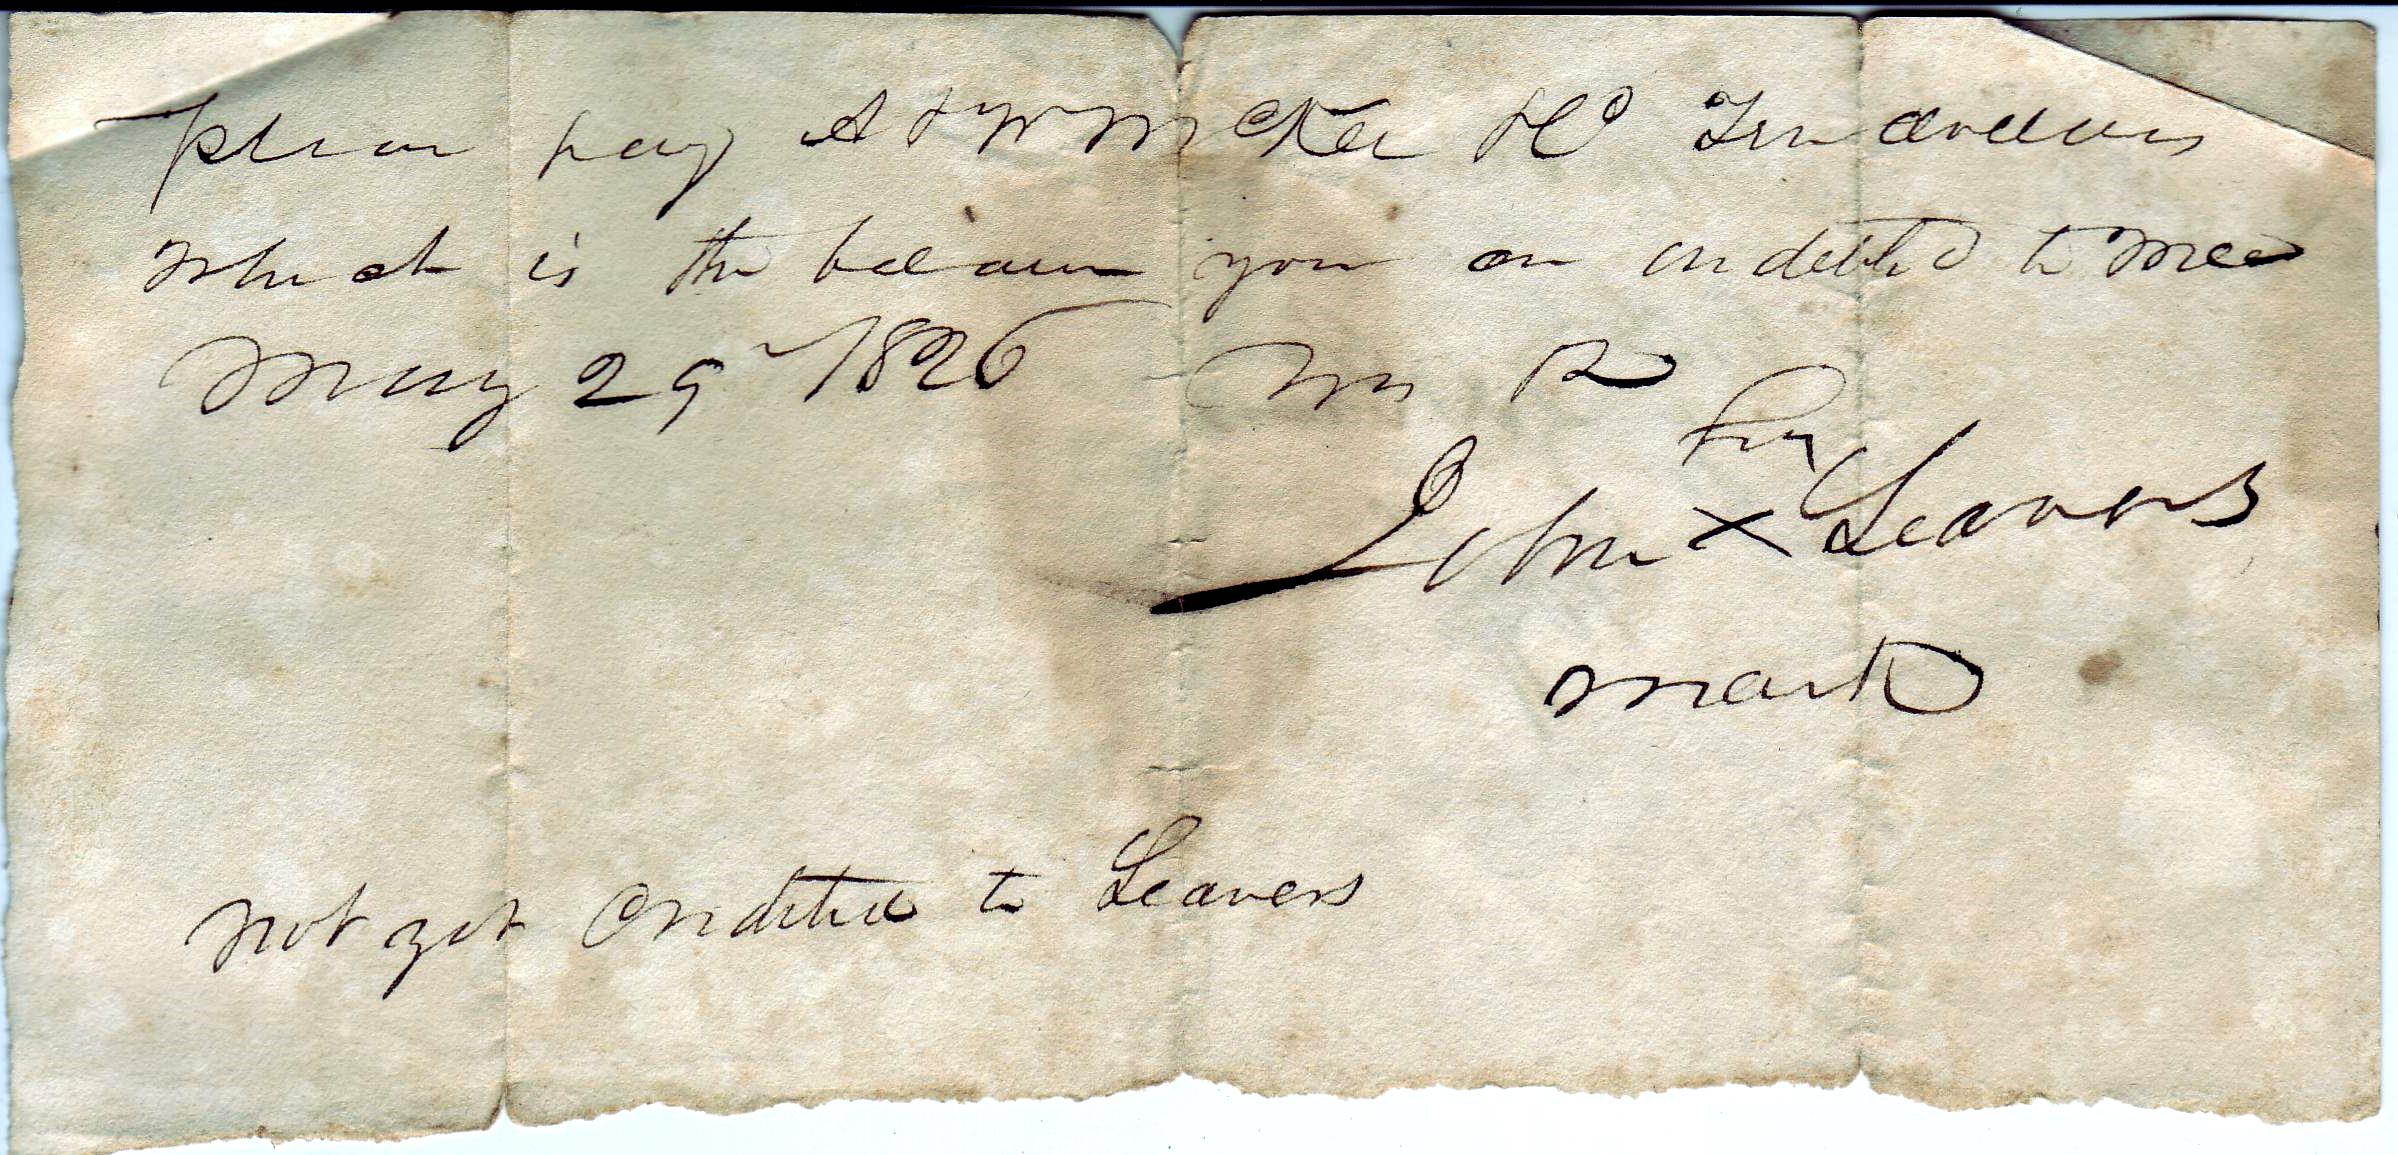 Please pay A & W McKee Ten dollars
Which is the balance you are indebted to Mee
May 29 1826
his
John X Leavers
mark
not yet Credited to Leavers